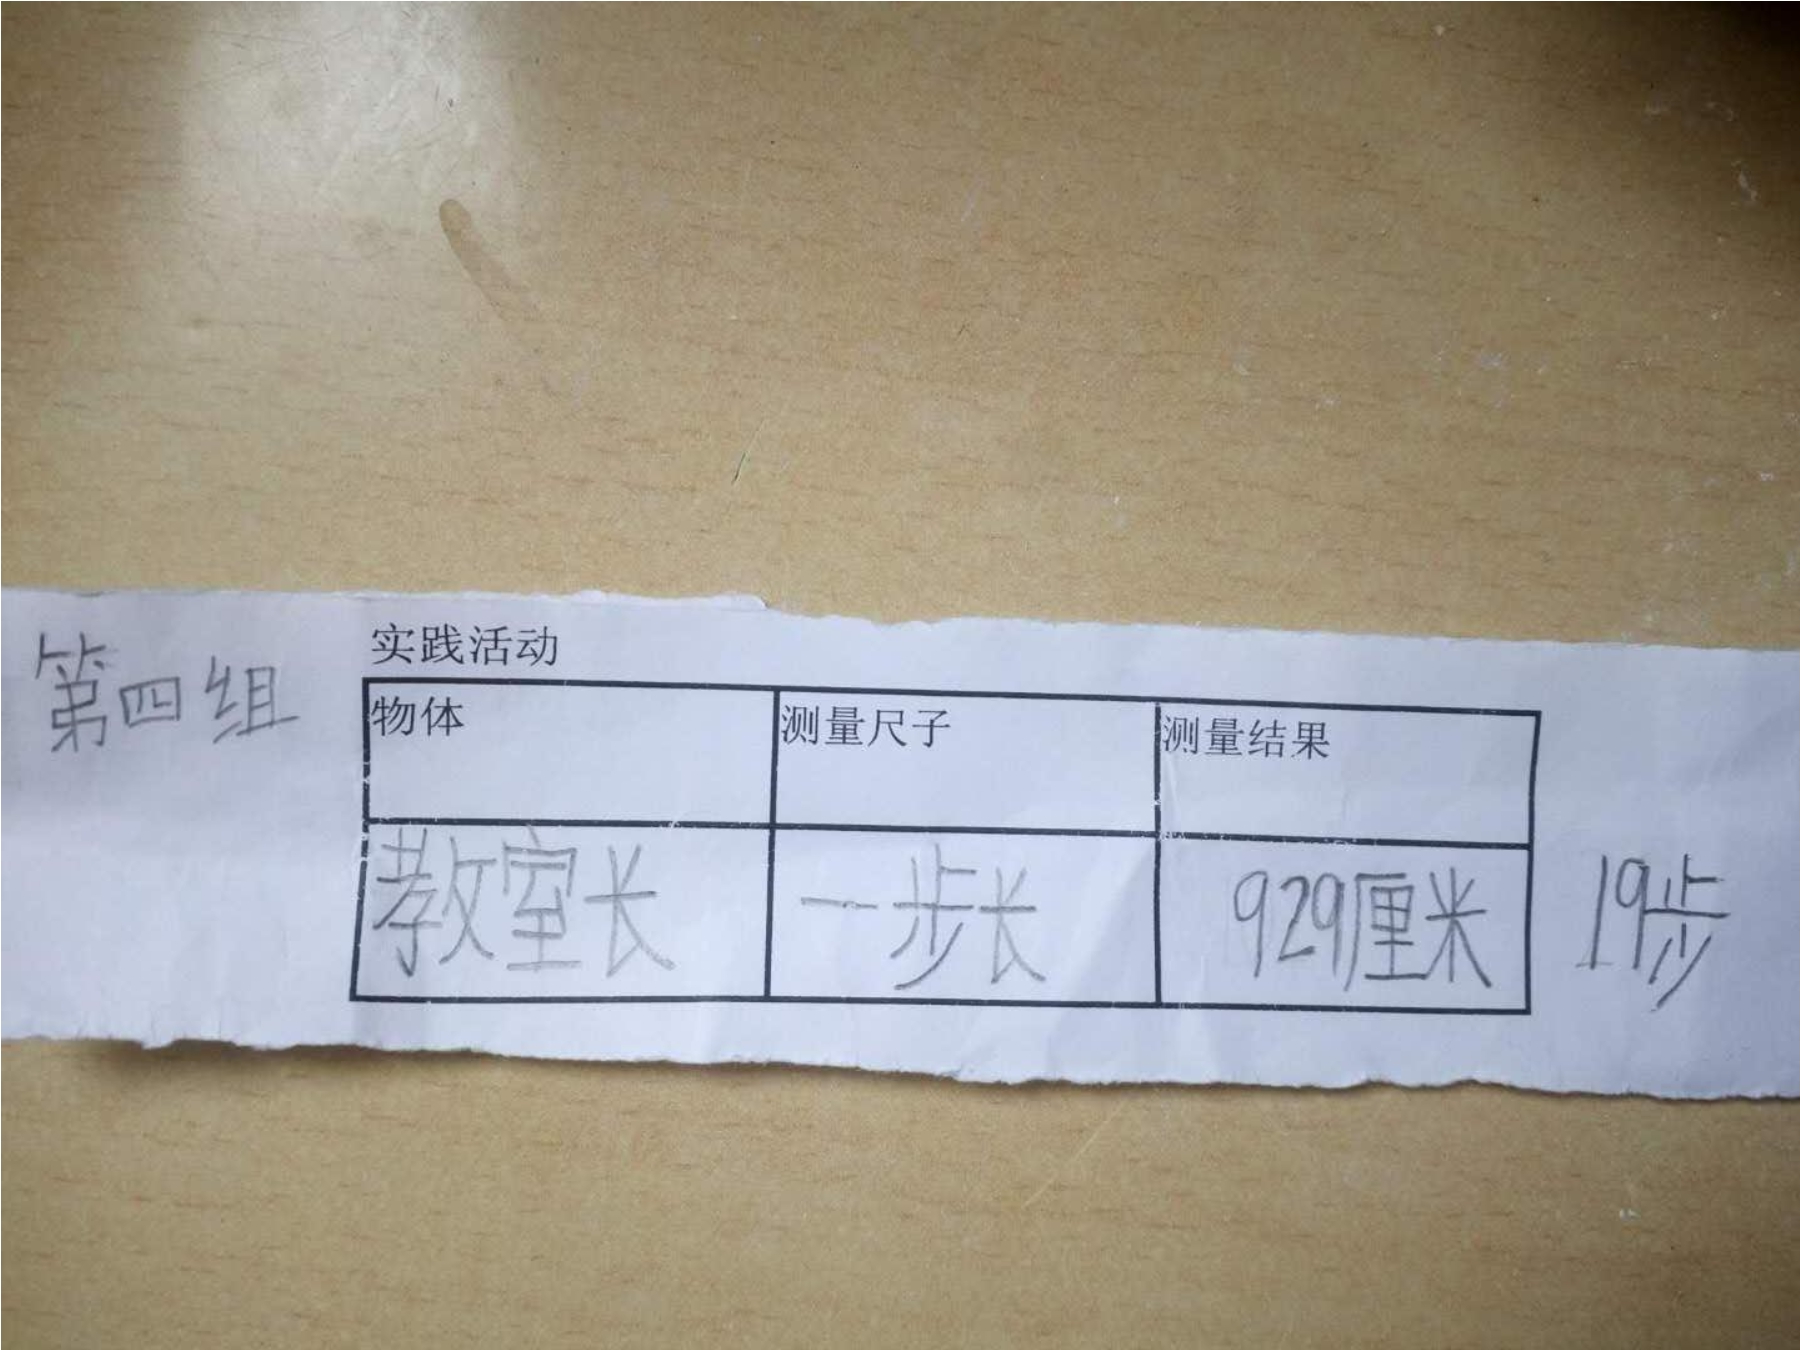 实践活动
第四组
物体 测量尺子 测量结果
教室长 一步长 929厘米 19步